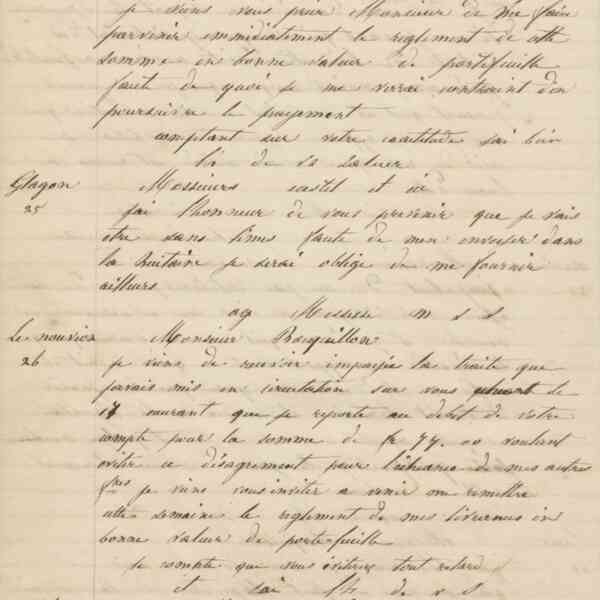 je viens vous prier Monsieur de me faire
parvenir immédiatement le reglement de cette
somme en bonne valeur de portefeuille
faute de quoi je me verrai contraint d'en
poursuivre le payement
comptant sur votre exactitude j'ai bien
de vs saluer
Glageon Messieurs castel et cie
25 j'ai l'honneur de vous prevenir que je vais
etre sans limes faute de men envoyer dans
la huitaine je serai obligé de me fournir
ailleurs
ag Messrs m s s
Le nouvion Monsieur Roquillon
26 je viens de recevoir impayée la traite que
j'avais mis en circulation sur vous le
17 courant que je reporte au debit de votre
compte pour la somme de fr 77.00 voulant
eviter ce désagrement pour l'échéance de mes autres
fres je viens vous inviter a venir me remettre
cette semaine le reglement de mes livraisons en
bonne valeur de portefeuille
Je compte que vous éviterez tout retard
et j'ai l'h de v s